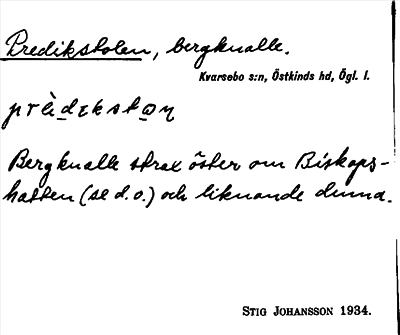 Predikstolen, bergknalle.
Kvarsebo s:n, Östkinds hd, Ögl. l.
Bergknalle strax öster om Biskops-
hatten (se d. o.) och liknande denna.
STIG JOHANSSON 1934.